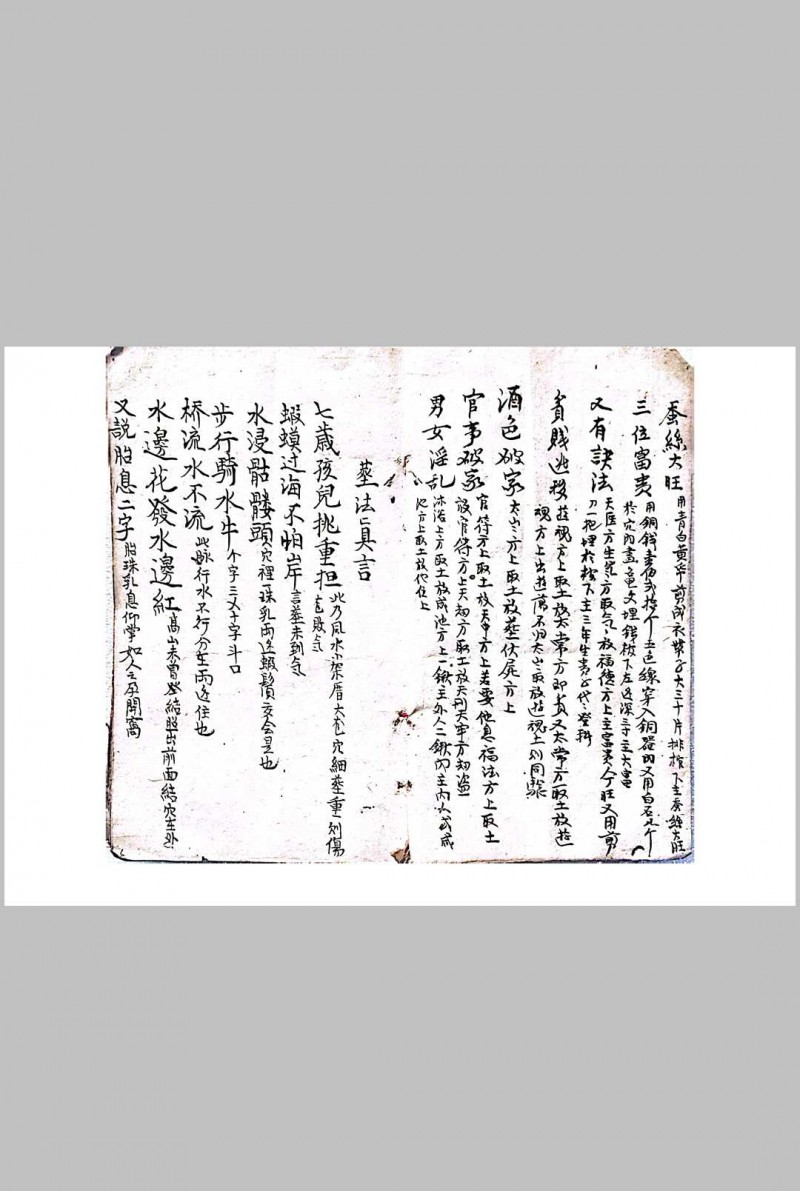 蚕絲大旺 用青白黃帋剪成衣裳子大三十片排棺下主蚕絲大旺
三位富貴 用銅錢壹伯貳拾个五色線穿入銅器內又用白石七个
於穴內畫龜文埋錢棺下左边深三寸主大富
又有訣法 天医方生氣方取气放福德方上主富貴人丁旺又用剪
刀一把埋於棺下主三年生貴子代代登科
貧賤逃移 遊魂方上取土放太常方即貧又太常方取土放遊
魂方上出遊傷不归大凶取放遊魂土則同
酒色破家 大凶方上取土放墓伏屍方上
官事破家 官符方上取土放天牢方上若要他息福法方上取土
放官符方上天刼方取土放天刑天牢方刼盜
男女淫乱 沐浴上方取土放咸池方上一鍬主外人二鍬內主內
池方上取土放他位上
塟法真言
七歲孩兒挑重担 此乃風水小架厝大穴細塟重則傷
敗气
蝦蟆过海不怕岸 言塟未到气
水浸骷髏頭 穴裡一珠乳両边蝦鬚交会是也
步行騎水牛 个字三叉十字斗口
桥流水不流 此脉行水不行分在両边住也
水邊花發水邊紅 高山未曾結出前面結穴在外
又説胎息二字 胎珠乳息仰掌如人之孕開窩